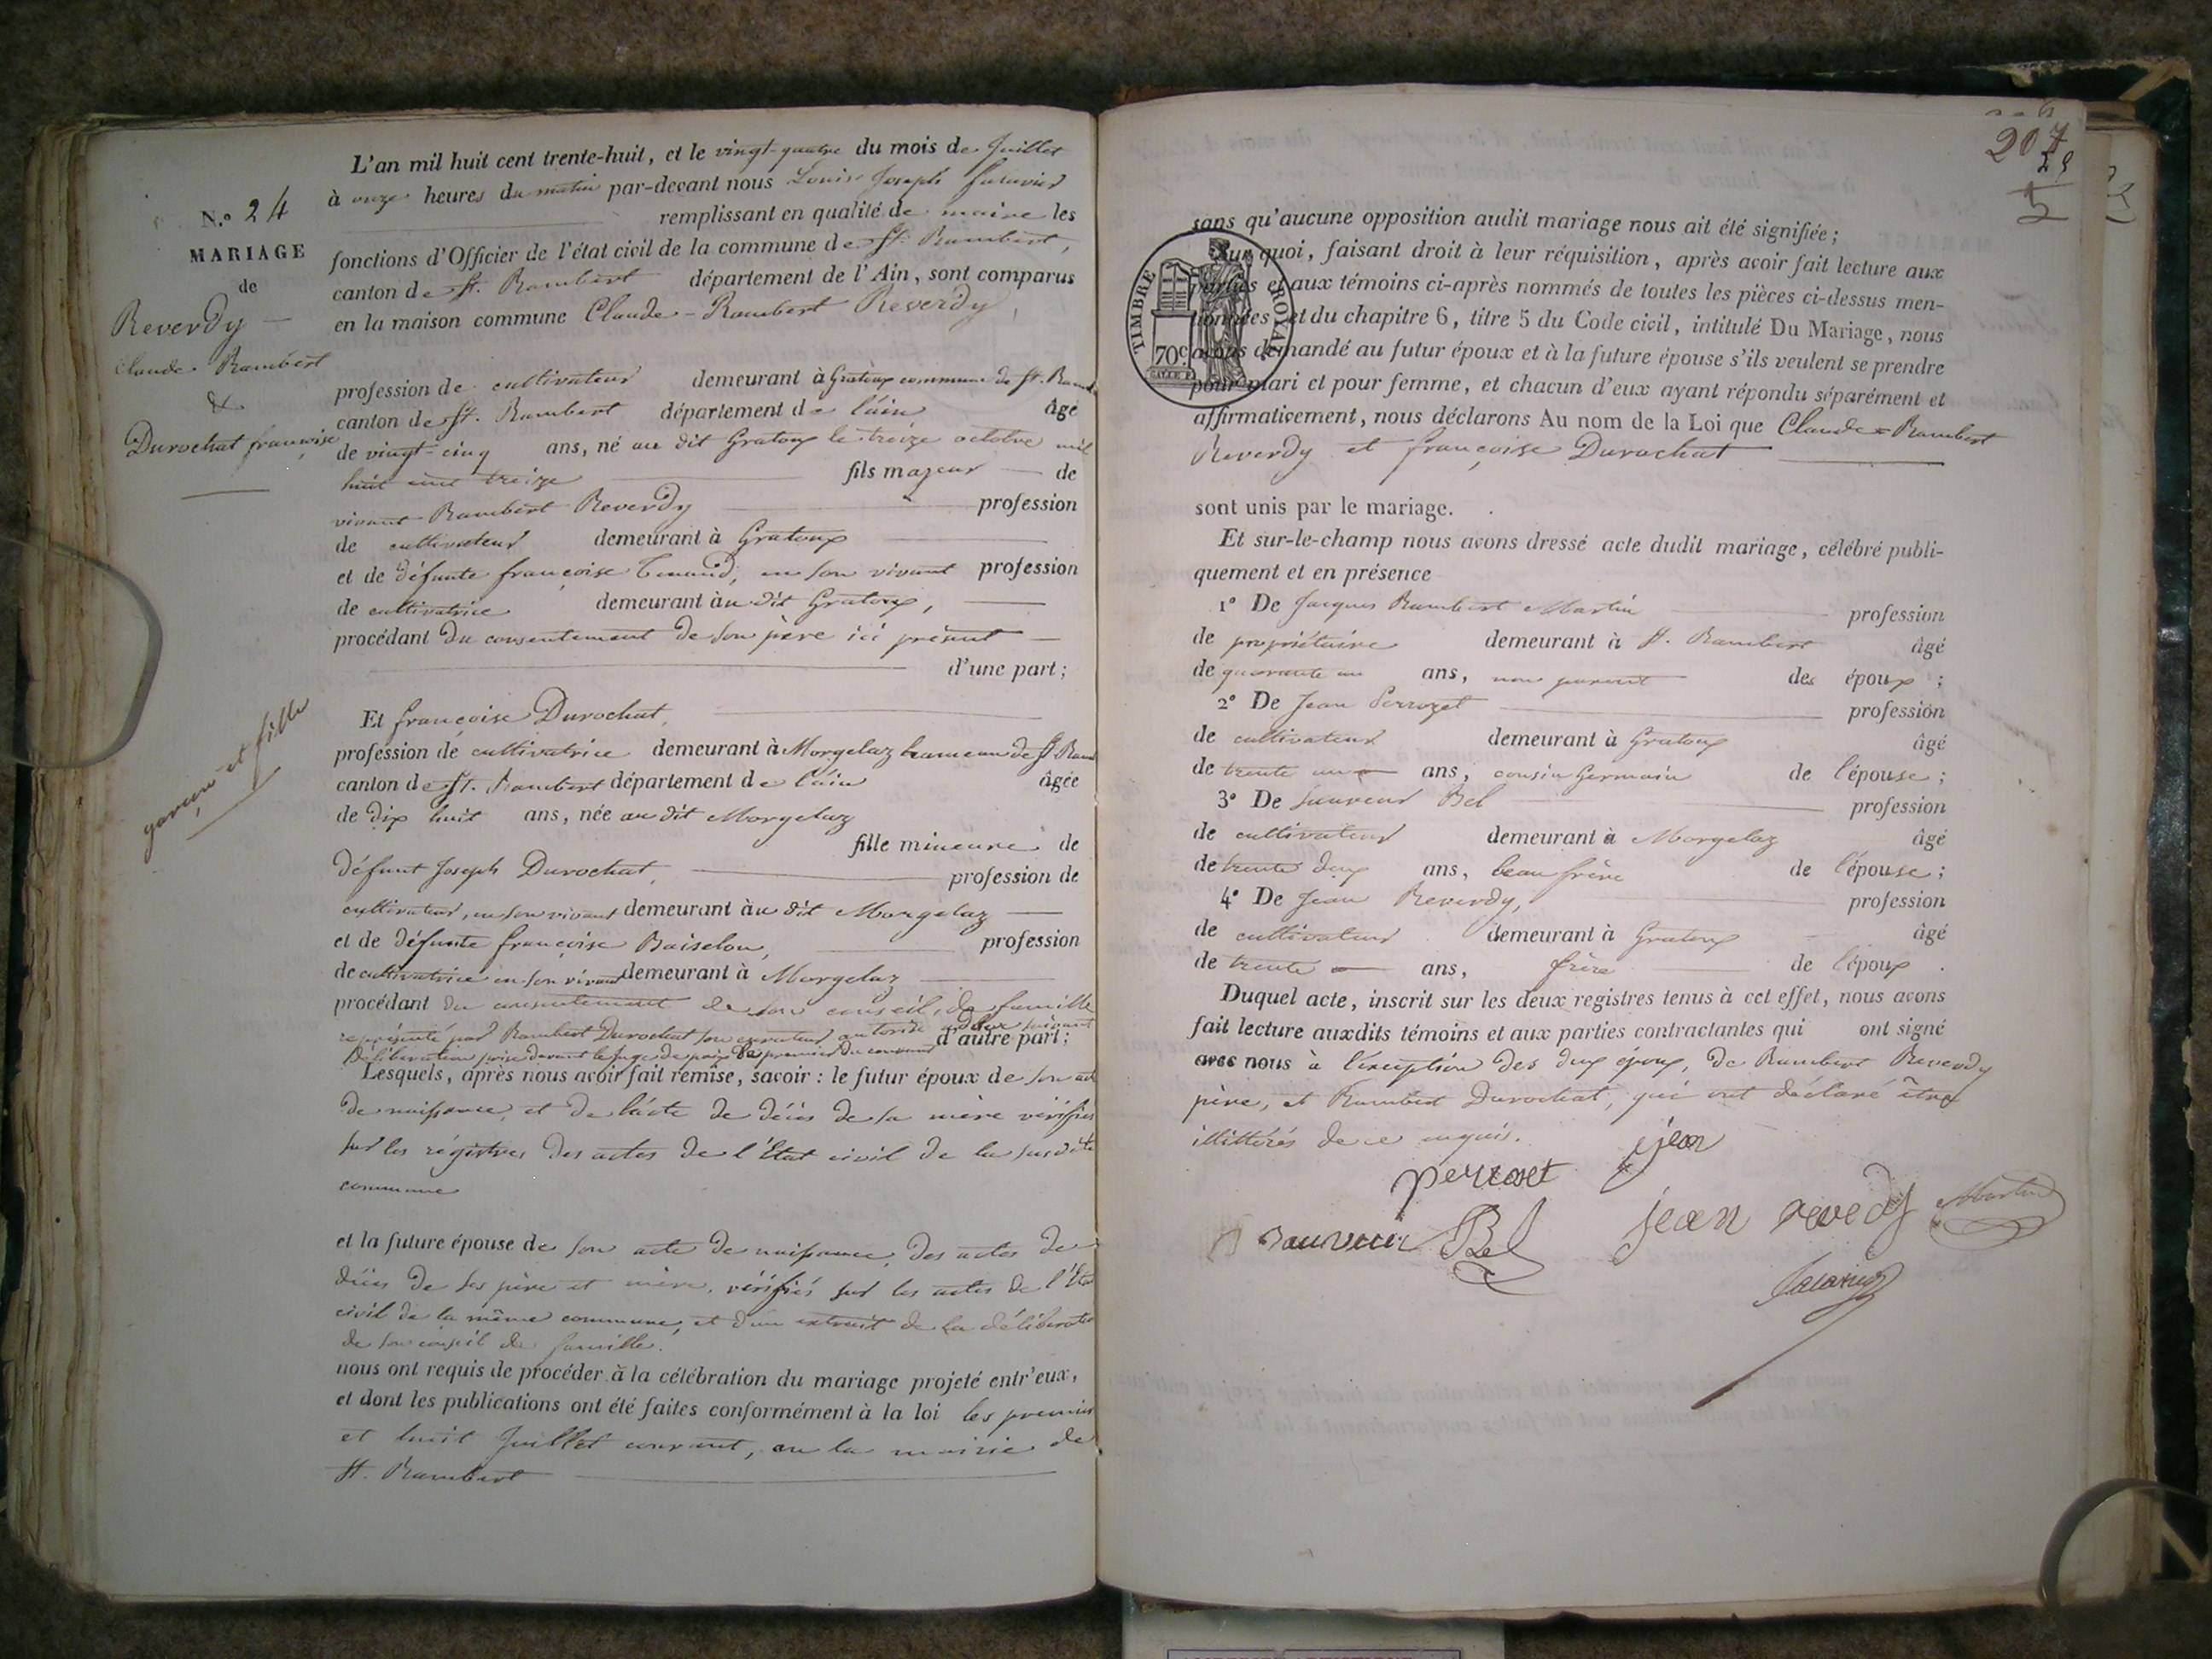 N.o 24
MARIAGE
de
Reverdy
Claude-Rambert
&
Durochat françoise
garçon et fille
L'an mil huit cent trente-huit, et le vingt-quatre du mois de Juillet
à onze heures du matin par-devant nous Louis Joseph
remplissant en qualité de maire les
fonctions d'Officier de l'état civil de la commune de St. Rambert,
canton de St. Rambert département de l'Ain, sont comparus
en la maison commune Claude-Rambert Reverdy,
profession de cultivateur demeurant à Gratoux commune de St. Ramb
canton de St. Rambert département de l'ain âgé
de vingt-cinq ans, né au dit Gratoux le treize octobre mil
huit cent treize fils majeur de
vivant Rambert Reverdy profession
de cultivateur demeurant à Gratoux
et de défunte françoise Tenand, en son vivant profession
de cultivatrice demeurant àu dit Gratoux,
procédant du consentement de son père ici présent
d'une part;
Et françoise Durochat,
profession de cultivatrice demeurant à Morgelaz hameau de St Ram
canton de St. Rambert département de l'ain âgée
de dix huit ans, née au dit Morgelaz
fille mineure de
défunt Joseph Durochat, profession de
cultivateur, en son vivant demeurant àu dit Morgelaz
et de défunte françoise Baiselon, profession
de cultivatrice en son vivant demeurant à Morgelaz
procédant du consentement de son conseil de famille
représenté par Rambert Durochat son curateur autorisé suivant
d'autre part;
délibération prise devant le juge de paix le premier du courant
Lesquels, après nous avoir fait remise, savoir : le futur époux de son act
de naissance, et de l'acte de décès de sa mère vérifiés
sur les régistres des actes de l'Etat civil de la susdite
commune
et la future épouse de son acte de naissance, des actes de
décès de ses père et mère, vérifiés sur les actes de l'Etat
civil de la même commune, et d'un extrait de la délibération
de son conseil de famille.
nous ont requis de procéder à la célébration du mariage projeté entr'eux,
et dont les publications ont été faites conformément à la loi les premier
et huit Juillet courant, en la mairie de
St. Rambert
207
sans qu'aucune opposition audit mariage nous ait été signifiée;
Sur quoi, faisant droit à leur réquisition, après avoir fait lecture aux
parties et aux témoins ci-après nommés de toutes les pièces ci-dessus men-
tionnées et du chapitre 6, titre 5 du Code civil, intitulé Du Mariage, nous
avons demandé au futur époux et à la future épouse s'ils veulent se prendre
pour mari et pour femme, et chacun d'eux ayant répondu séparément et
affirmativement, nous déclarons Au nom de la Loi que Claude-Rambert
Reverdy et françoise Durochat
TIMBRE ROYAL
70c
sont unis par le mariage.
Et sur-le-champ nous avons dressé acte dudit mariage, célébré publi-
quement et en présence
1° De Jacques Rambert Martin profession
de propriétaire demeurant à St. Rambert âgé
de quarante un ans, non parent des époux ;
2° De Jean Perrozet profession
de cultivateur demeurant à Gratoux âgé
de trente un ans, cousin Germain de l'épouse;
3° De Sauveur Bel profession
de cultivateur demeurant à Morgelaz âgé
de trente deux ans, beau frère de l'épouse;
4° De Jean Reverdy, profession
de cultivateur demeurant à Gratoux âgé
de trente ans, frère de l'époux.
Duquel acte, inscrit sur les deux registres tenus à cet effet, nous avons
fait lecture auxdits témoins et aux parties contractantes qui ont signé
avec nous à l'exception des deux époux, de Rambert Reverdy
père, et Rambert Durochat, qui ont déclaré être
illittérés de ce enquis.
jean
perroset
Sauveur Bel
jean reverdy
Martin